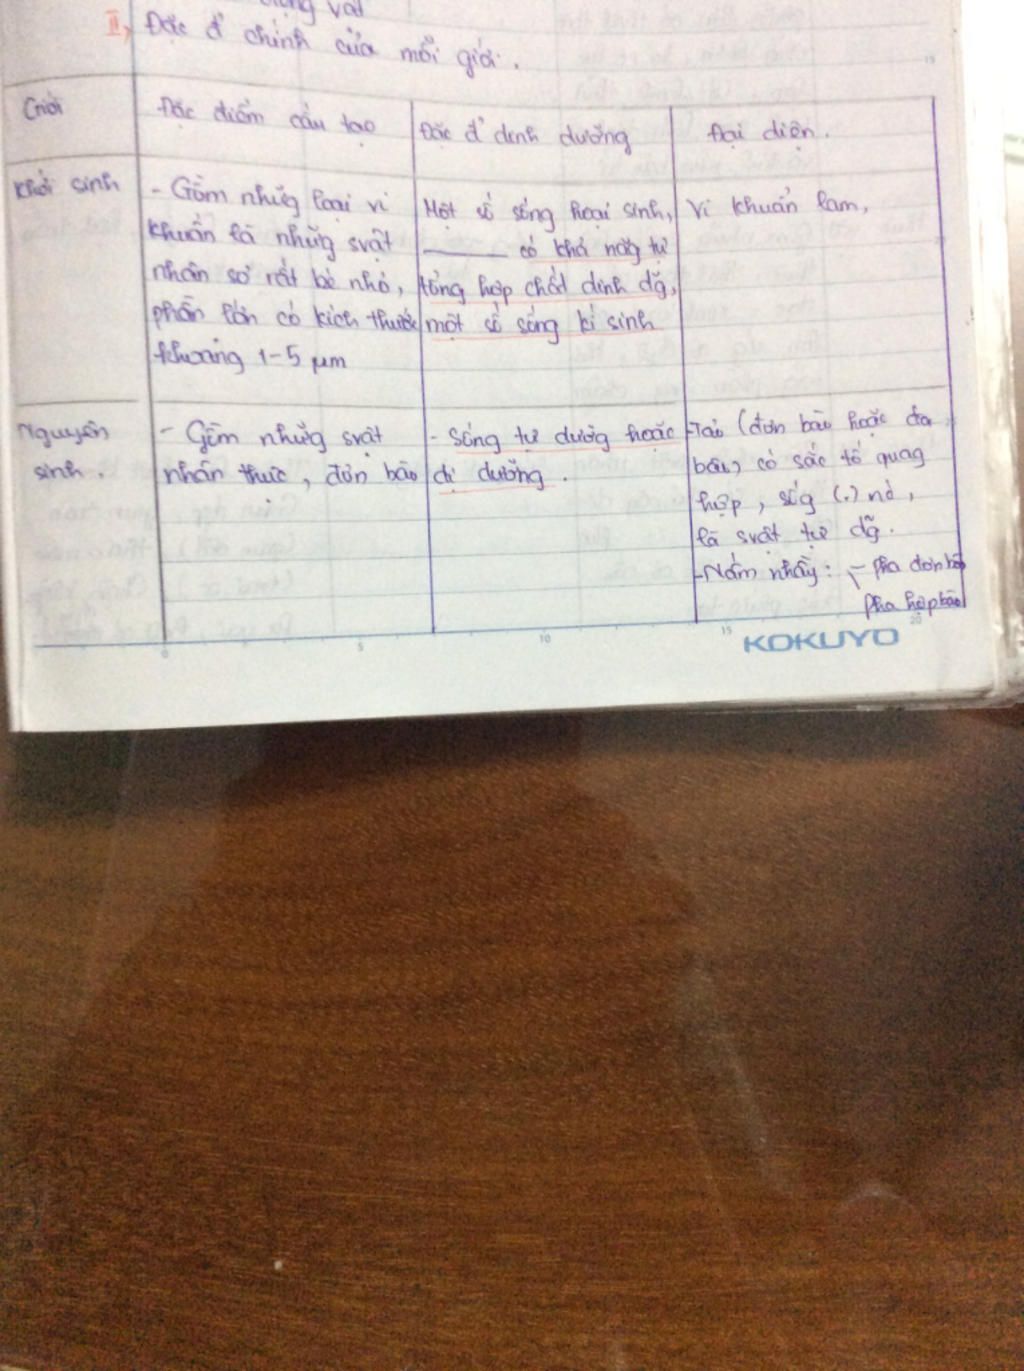 động vật
II, Đặc đ' chính của mỗi giới.
Giới
Đặc điểm cấu tạo
Đặc đ' dinh dưỡng
Đại diện.
Khởi sinh
- Gồm những loại vi
khuẩn là những svật
nhân sơ rất bé nhỏ,
phần lớn có kích thước
khoảng 1-5 µm
Một số sống hoại sinh,
——— có khả năng tự
tổng hợp chất dinh dg,
một số sống kí sinh
Vi khuẩn lam,
Nguyên
sinh.
- Gồm những svật
nhân thực, đơn bào
- Sống tự dưỡng hoặc
dị dưỡng.
- Tảo (đơn bào hoặc đa
bào) có sắc tố quag
hợp, sốg (.) nc,
là svật tự dg.
- Nấm nhầy: - pha đơn bào
pha hợp bào
0 5 10 15 20
KOKUYO